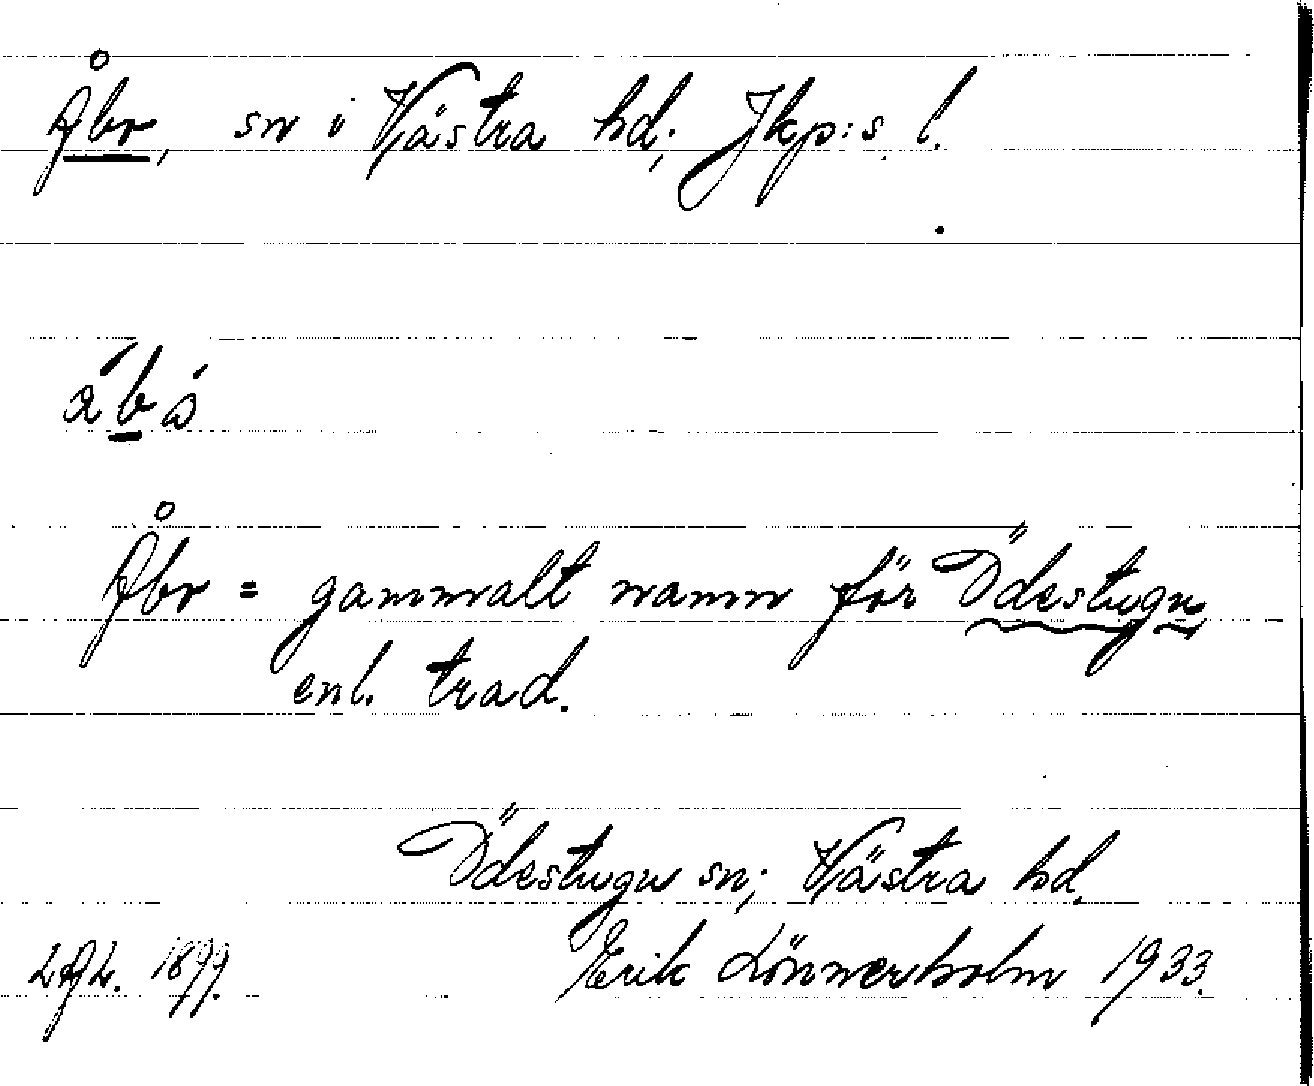 Åbr, sn i Västra hd; Jkp:s l.
Åbr = gammalt namn för Ödestugu
enl. trad.
Ödestugu sn; Västra hd.
Erik Lönnerholm 1933.
LAL. 1899.